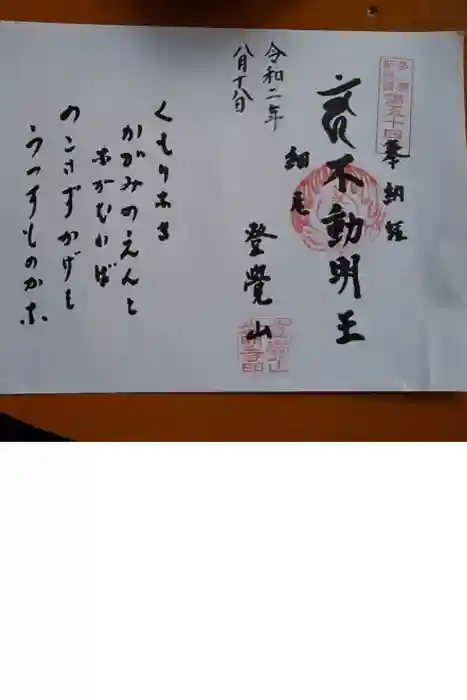 第五十四
奉納経
不動明王
細尾
登覺山
令和二年
八月十八日
くもりなき
かがみのえんと
ながむれば
のこさずかげを
うつすものかな